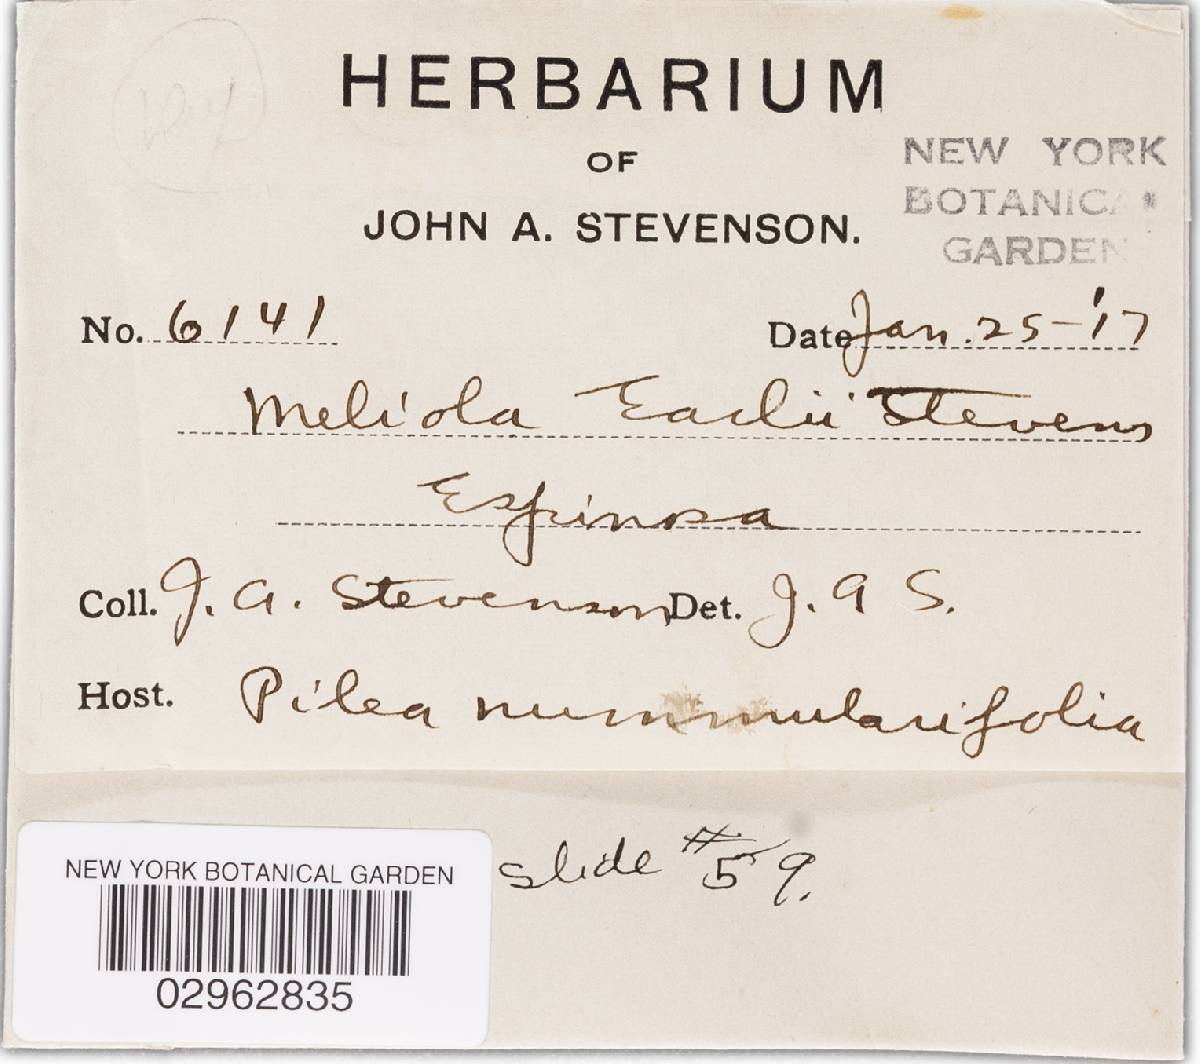 HERBARIUM
OF
JOHN A. STEVENSON.
NEW YORK
BOTANICA
GARDEN
No. 6141
Date Jan. 25-'17
Meliola Earlii Stevens
Espinosa
Coll. J. A. Stevenson Det. J. A S.
Host. Pilea nummularifolia
slide #59.
NEW YORK BOTANICAL GARDEN
02962835